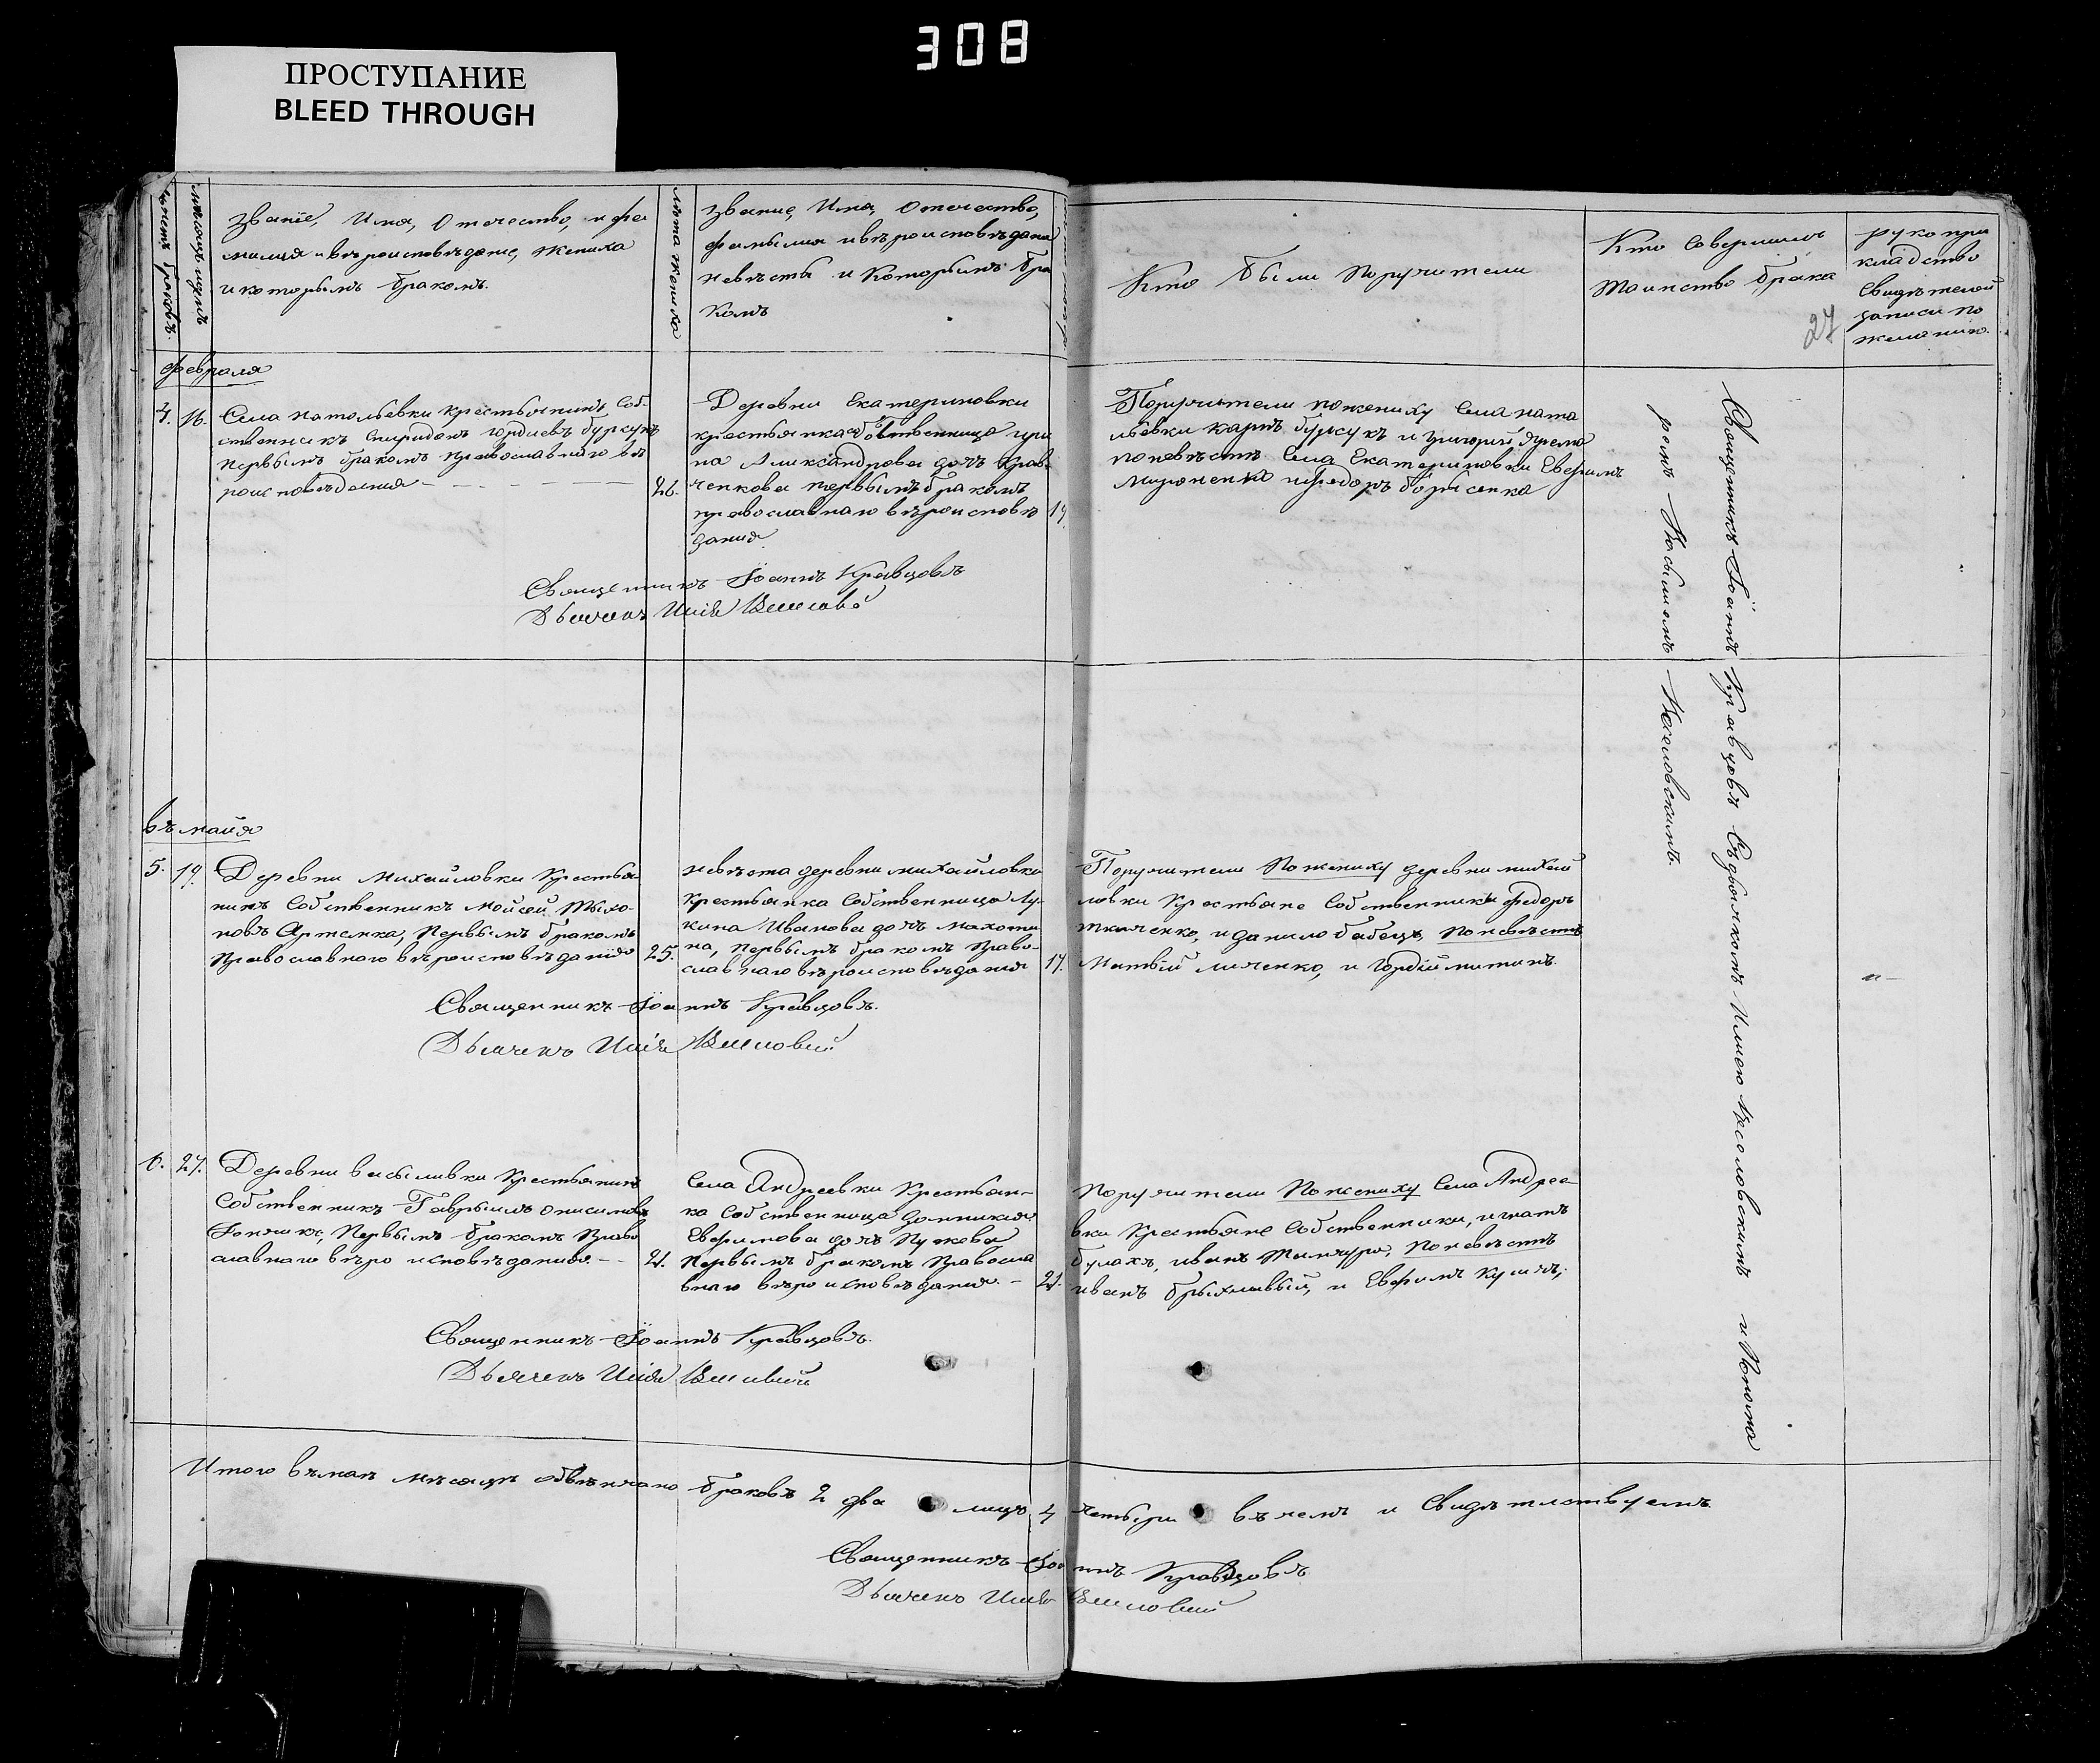 308
ПРОСТУПАНИЕ
BLEED THROUGH
Званіе, Имя, Отечество, и фа
милия и вѣроисповѣдание, жениха
и которымъ бракомъ.
лѣта жениха
Звание, Имя, Отечество,
фамылия и вѣроисповѣдания
невѣсты и Которымъ бра
комъ
Кто были Поручители
Кто Совершилъ
Таинство брака
Рукопри
кладство
Свидѣтелей
записи по
желанию.
27
февраля
4. 16.
Села натольевки крестьянинъ Соб-
ственникъ Спиридонъ Гордиевъ бурсукъ
первымъ бракомъ православнаго вѣ
роисповѣдания
26.
Деревни Екатериновки
крестьянка собственница ири
на Аликсандрова дочь Крав-
ченкова первымъ бракомъ
православнаго вѣроисповѣ
дания
19.
Поручители пожениху Села ната
льевки карпъ бурсукъ и григорий ярема
поневѣстѣ Села Екатериновки Евфимъ
Мироненко и федоръ борисенко
Священникъ Іоаннъ Кравцовъ
Дьячекъ Илія
въ майя
5. 19.
Деревни Михайловки Крестья-
нинъ Собственникъ Мойсей Тыхо-
новъ Артемка, Первымъ бракомъ
Православнаго вѣроисповѣдания
25.
невѣста деревни михайловки
Крестьянка Собственница Лу-
киna Иванова дочь махоти
на, Первымъ бракомъ Право-
славнаго вѣроисповѣдания
17.
Поручители Пожениху деревни михай
ловки Крестьяне Собственники федоръ
ткаченко, и данило бабецъ, Поневѣстѣ
Матвій личенко, и Гордій митинъ.
Священникъ Іоаннъ Кравцовъ.
Дьячекъ Илія
6. 27.
Деревни васыливки Крестьянинъ
Собственникъ Гаврыилъ онисимовъ
Гончикъ, Первымъ бракомъ Право
славнаго вѣро исповѣдания. -
21.
Села Андреевки Крестьян-
ка Собственница Домникия
Евфимова дочь Пужева
Первымъ бракомъ Правосла
внаго вѣро исповѣдания. -
21.
Поручители Пожениху Села Андрее-
вки Крестьяне Собственники, игнатъ
булахъ, иванъ Танчура, Поневѣстѣ
иванъ брыхливый, и Евфимъ Кушчъ;
Священникъ Іоаннъ Кравцовъ.
Дьячекъ Илія
Священникъ Іоаннъ Кравцовъ Съ дьячкомъ Илиею и Понома
ремъ
Итого въ маѣ мѣсяцѣ обвѣнчано браковъ 2 два лицъ 4 четыри въ чемъ и Свидѣтелствуемъ
Священникъ Іоаннъ Кравцовъ
Дьячекъ Илія